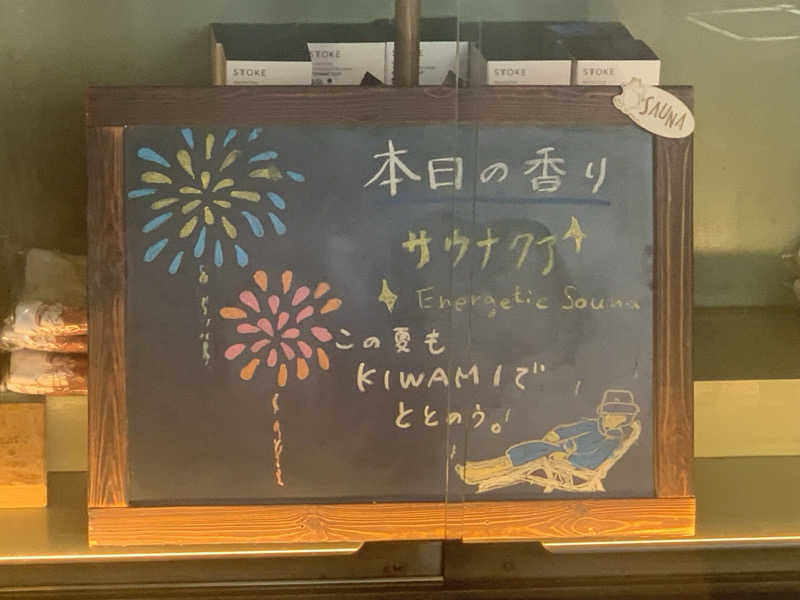 STOKE
STOKE
STOKE
STOKE
SAUNA
本日の香り
サウナクア
Energetic Sauna
この夏も
KIWAMIで
ととのう。